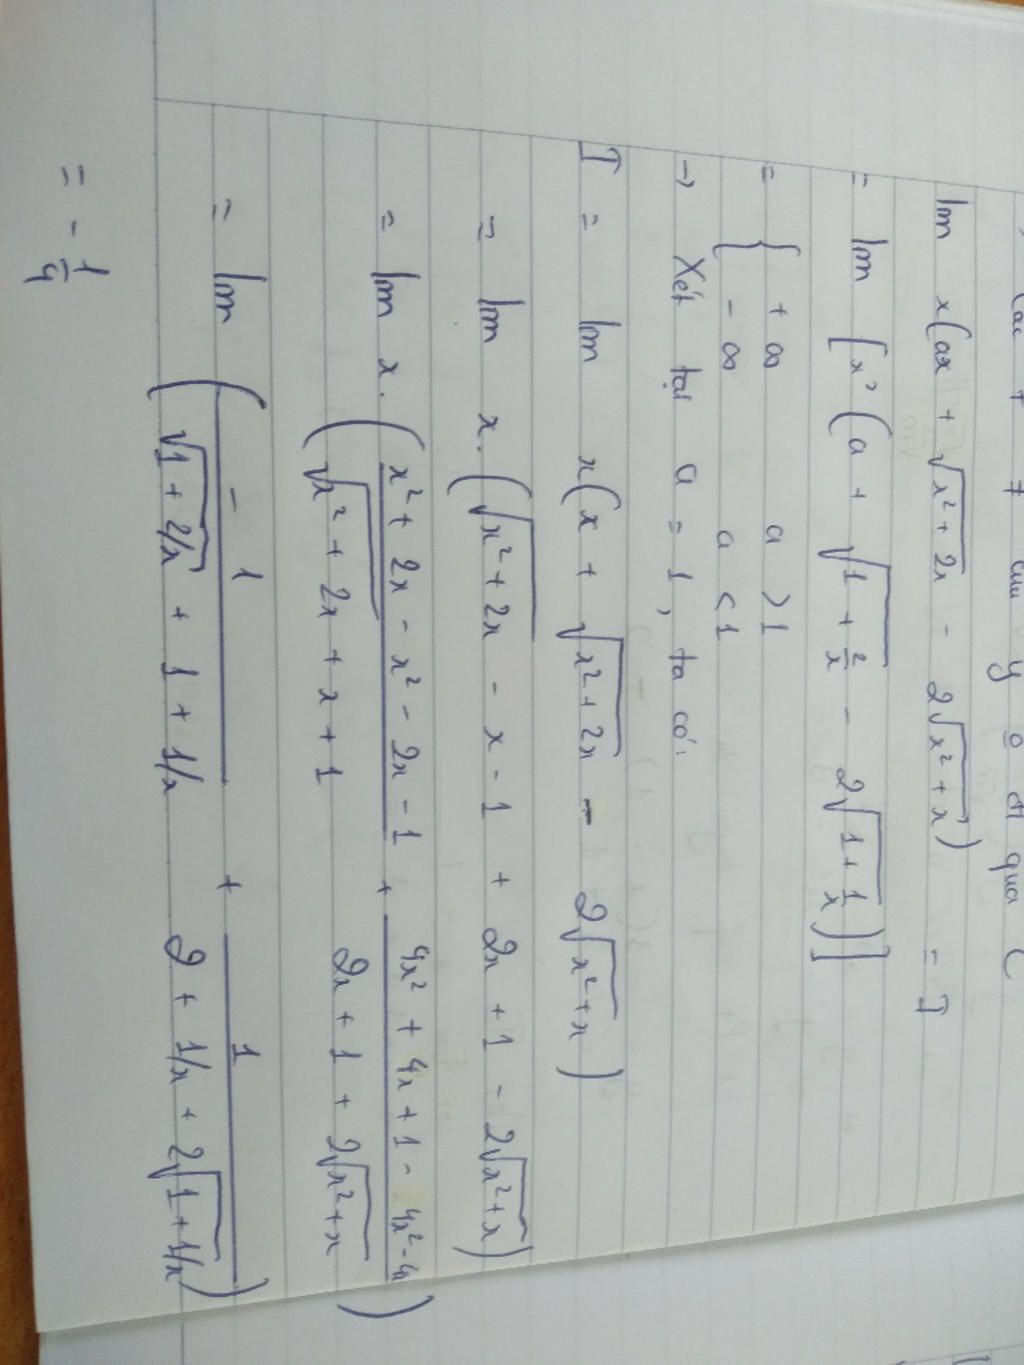 lim x(ax + √(x² + 2x) - 2√(x² + x)) = I
= lim [x² (a + √(1 + 2/x) - 2√(1 + 1/x))]
= { + ∞ a > 1
{ - ∞ a < 1
→ Xét tại a = 1, ta có:
I = lim x(x + √(x² + 2x) - 2√(x² + x))
= lim x. (√(x² + 2x) - x - 1 + 2x + 1 - 2√(x² + x))
= lim x. ((x² + 2x - x² - 2x - 1)/(√(x² + 2x) + x + 1) + (4x² + 4x + 1 - 4x² - 4x)/(2x + 1 + 2√(x² + x)))
= lim (-1/(√(1 + 2/x) + 1 + 1/x) + 1/(2 + 1/x + 2√(1 + 1/x)))
= - 1/4